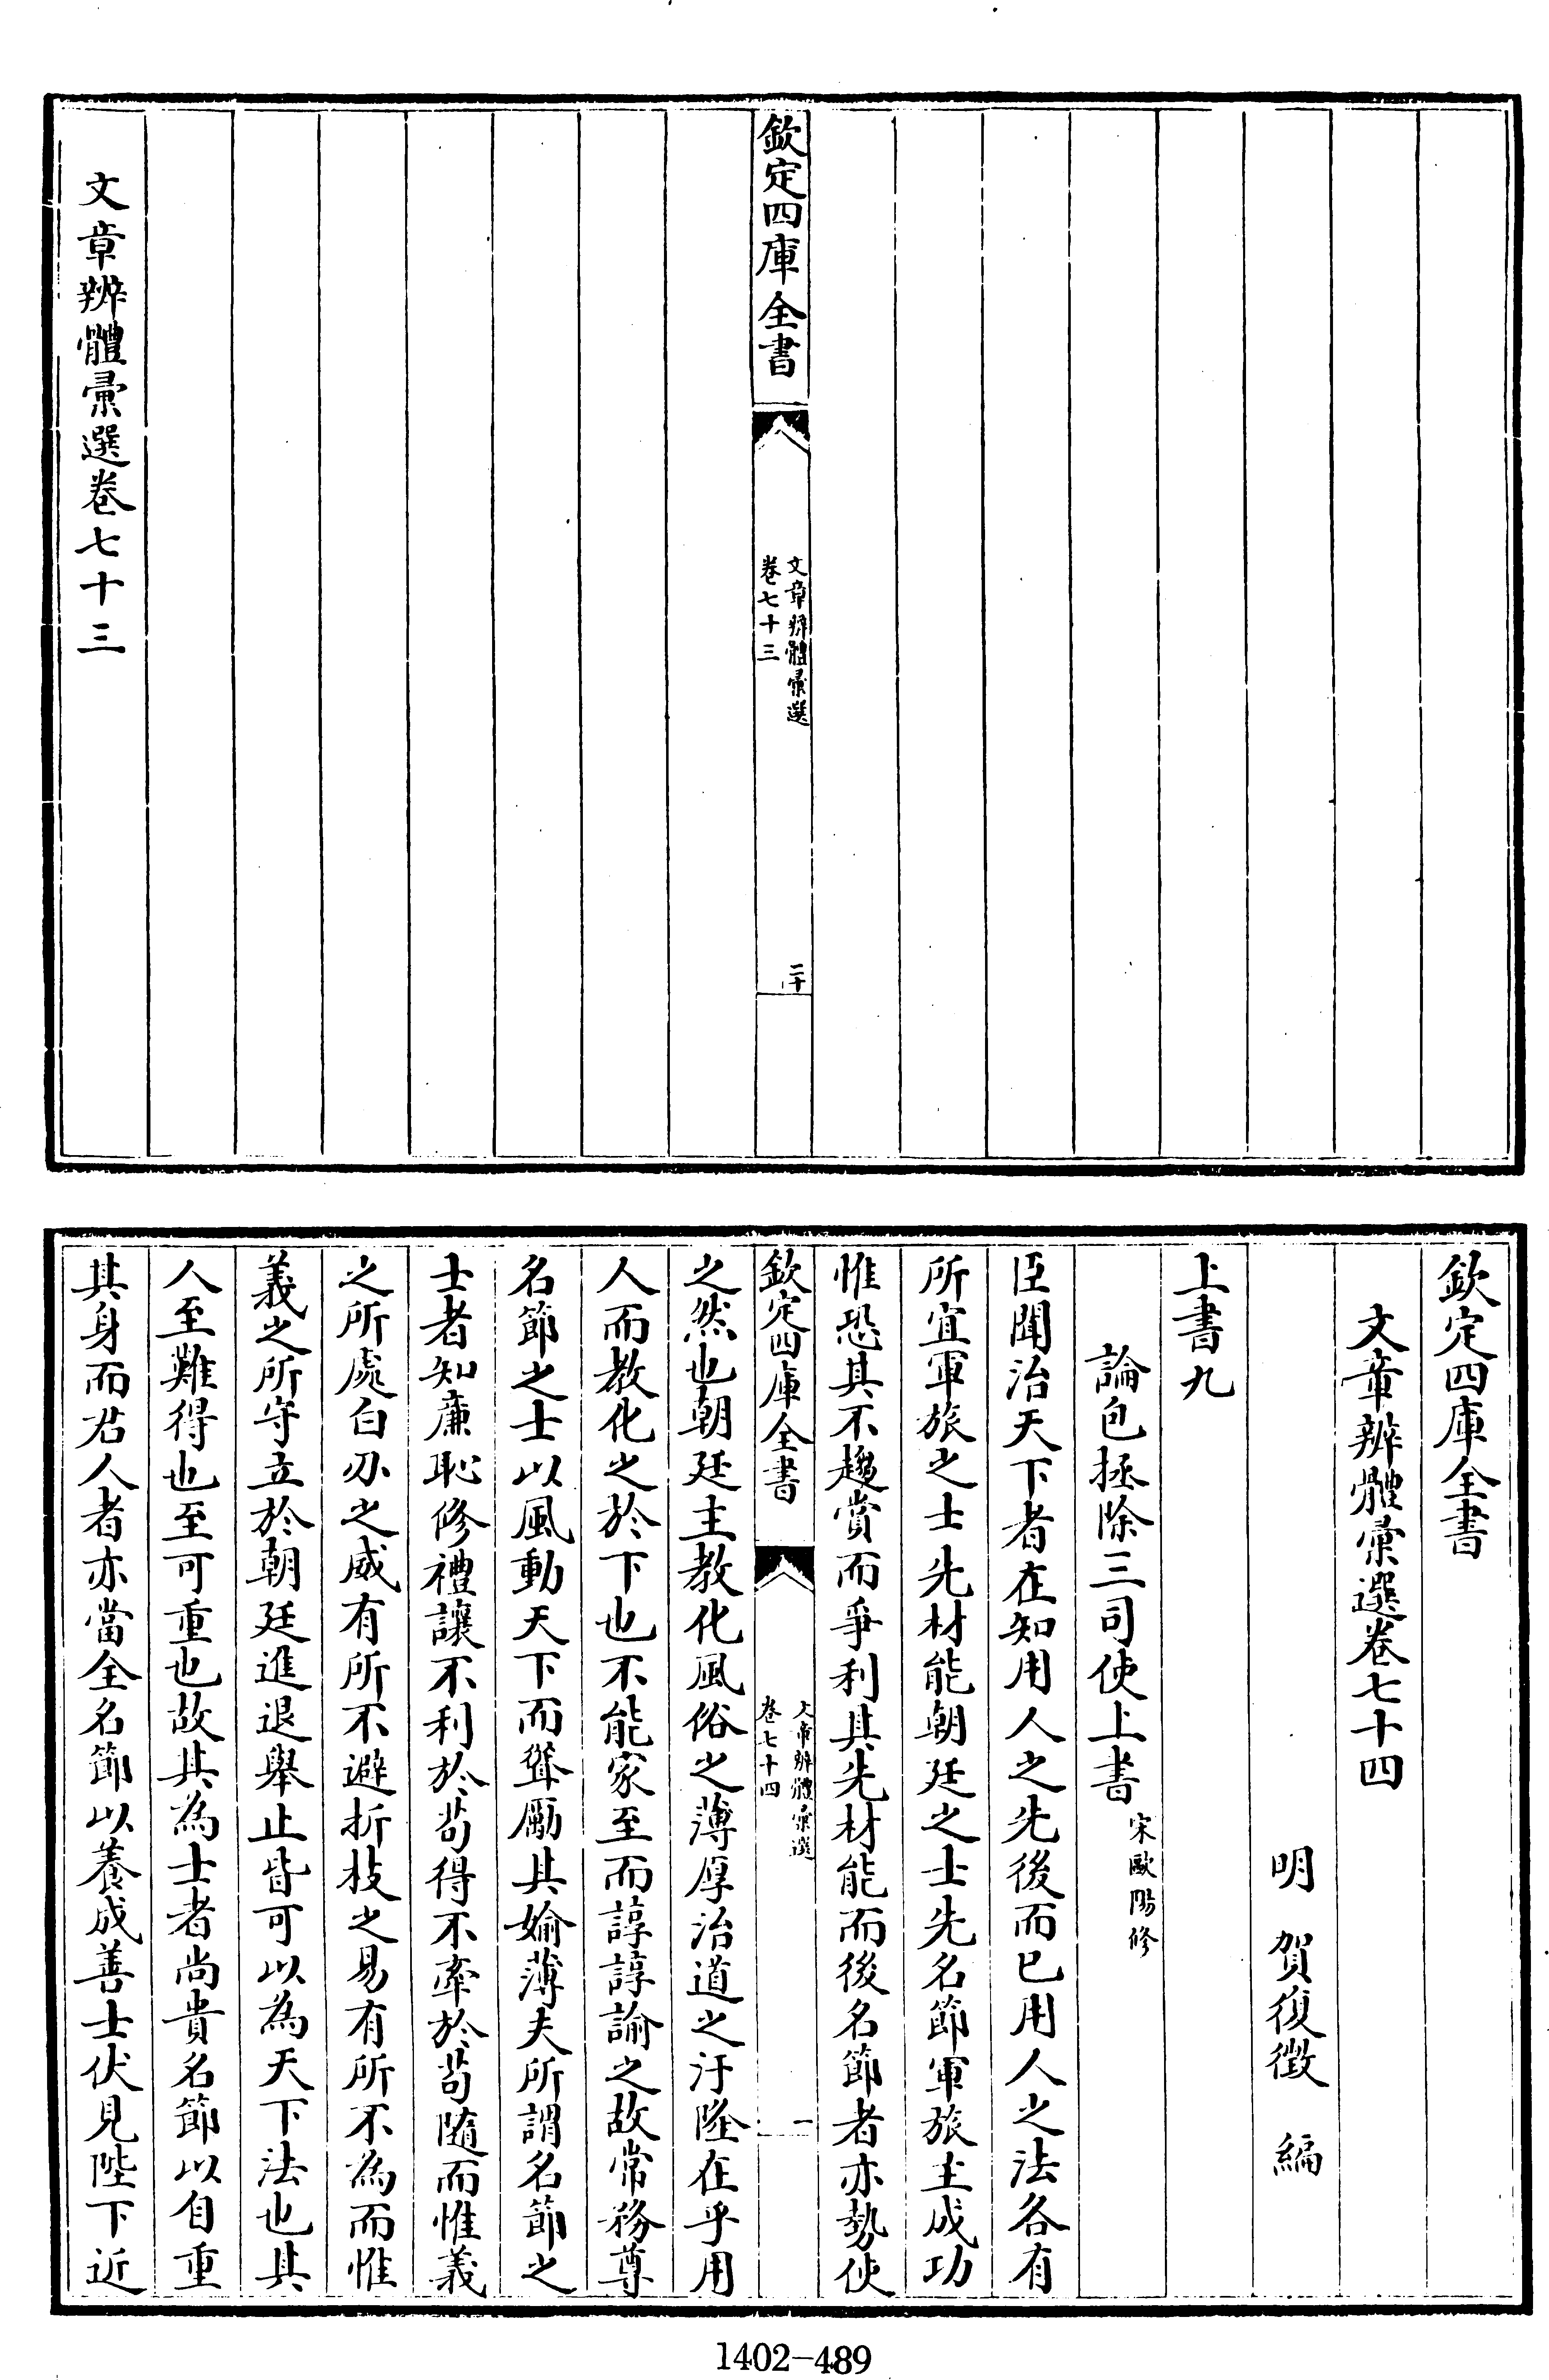 欽定四庫全書
文章辨體彙選
卷七十三
二十
文章辨體彙選卷七十三
欽定四庫全書
文章辨體彙選卷七十四
明 賀復徵 編
上書九
論包拯除三司使上書 宋歐陽修
臣聞治天下者在知用人之先後而已用人之法各有
所宜軍旅之士先材能朝廷之士先名節軍旅主成功
惟恐其不趨賞而爭利其先材能而後名節者亦勢使
欽定四庫全書
文章辨體彙選
卷七十四
一
之然也朝廷主教化風俗之薄厚治道之汙隆在乎用
人而教化之於下也不能家至而諄諄諭之故常務尊
名節之士以風動天下而聳勵其媮薄夫所謂名節之
士者知廉恥修禮讓不利於苟得不牽於苟隨而惟義
之所處白刃之威有所不避折枝之易有所不為而惟
義之所守立於朝廷進退舉止皆可以為天下法也其
人至難得也至可重也故其為士者尚貴名節以自重
其身而君人者亦當全名節以養成善士伏見陛下近
1402-489